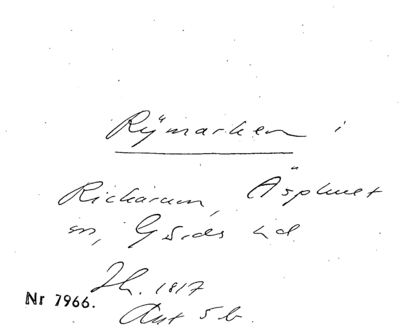 Rÿmarken i
Richarum, Äsphult
sn, Gärds hd
Jh. 1817
Nr 7966.
Akt 5 b.